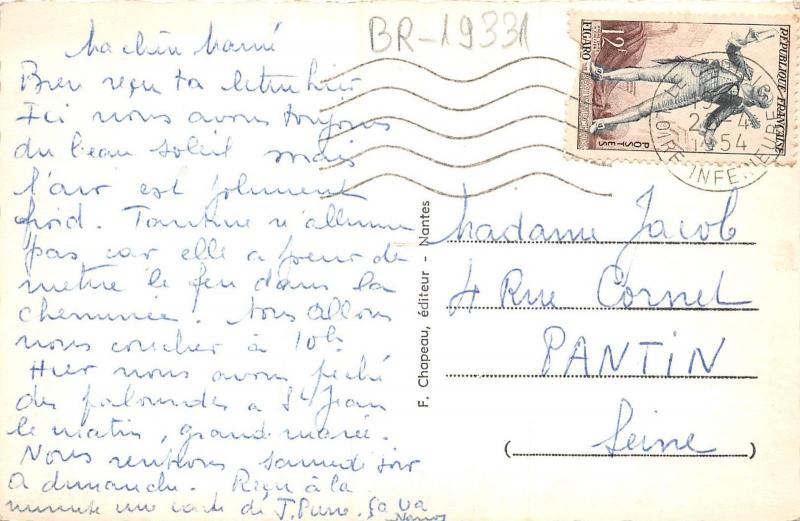 Ma chère Mamé
BR-19331
Bien reçu ta lettre hier
Ici nous avons toujours
du beau soleil mais
l'air est joliment
froid. Tantine n'allume
pas car elle a peur de
mettre le feu dans la
cheminée. Nous allons
nous coucher à 10h.
Hier nous avons pêché
des palourdes à St Jean
le matin, grande marée.
Nous rentrons samedi soir
A dimanche. Reçu à la
minute une carte de J. Pierre. ça va
F. Chapeau, éditeur - Nantes
REPUBLIQUE FRANÇAISE
12F
FIGARO
POSTES
1954
LOIRE INFERIEURE
Madame Jacob
4 Rue Cornet
PANTIN
(Seine)